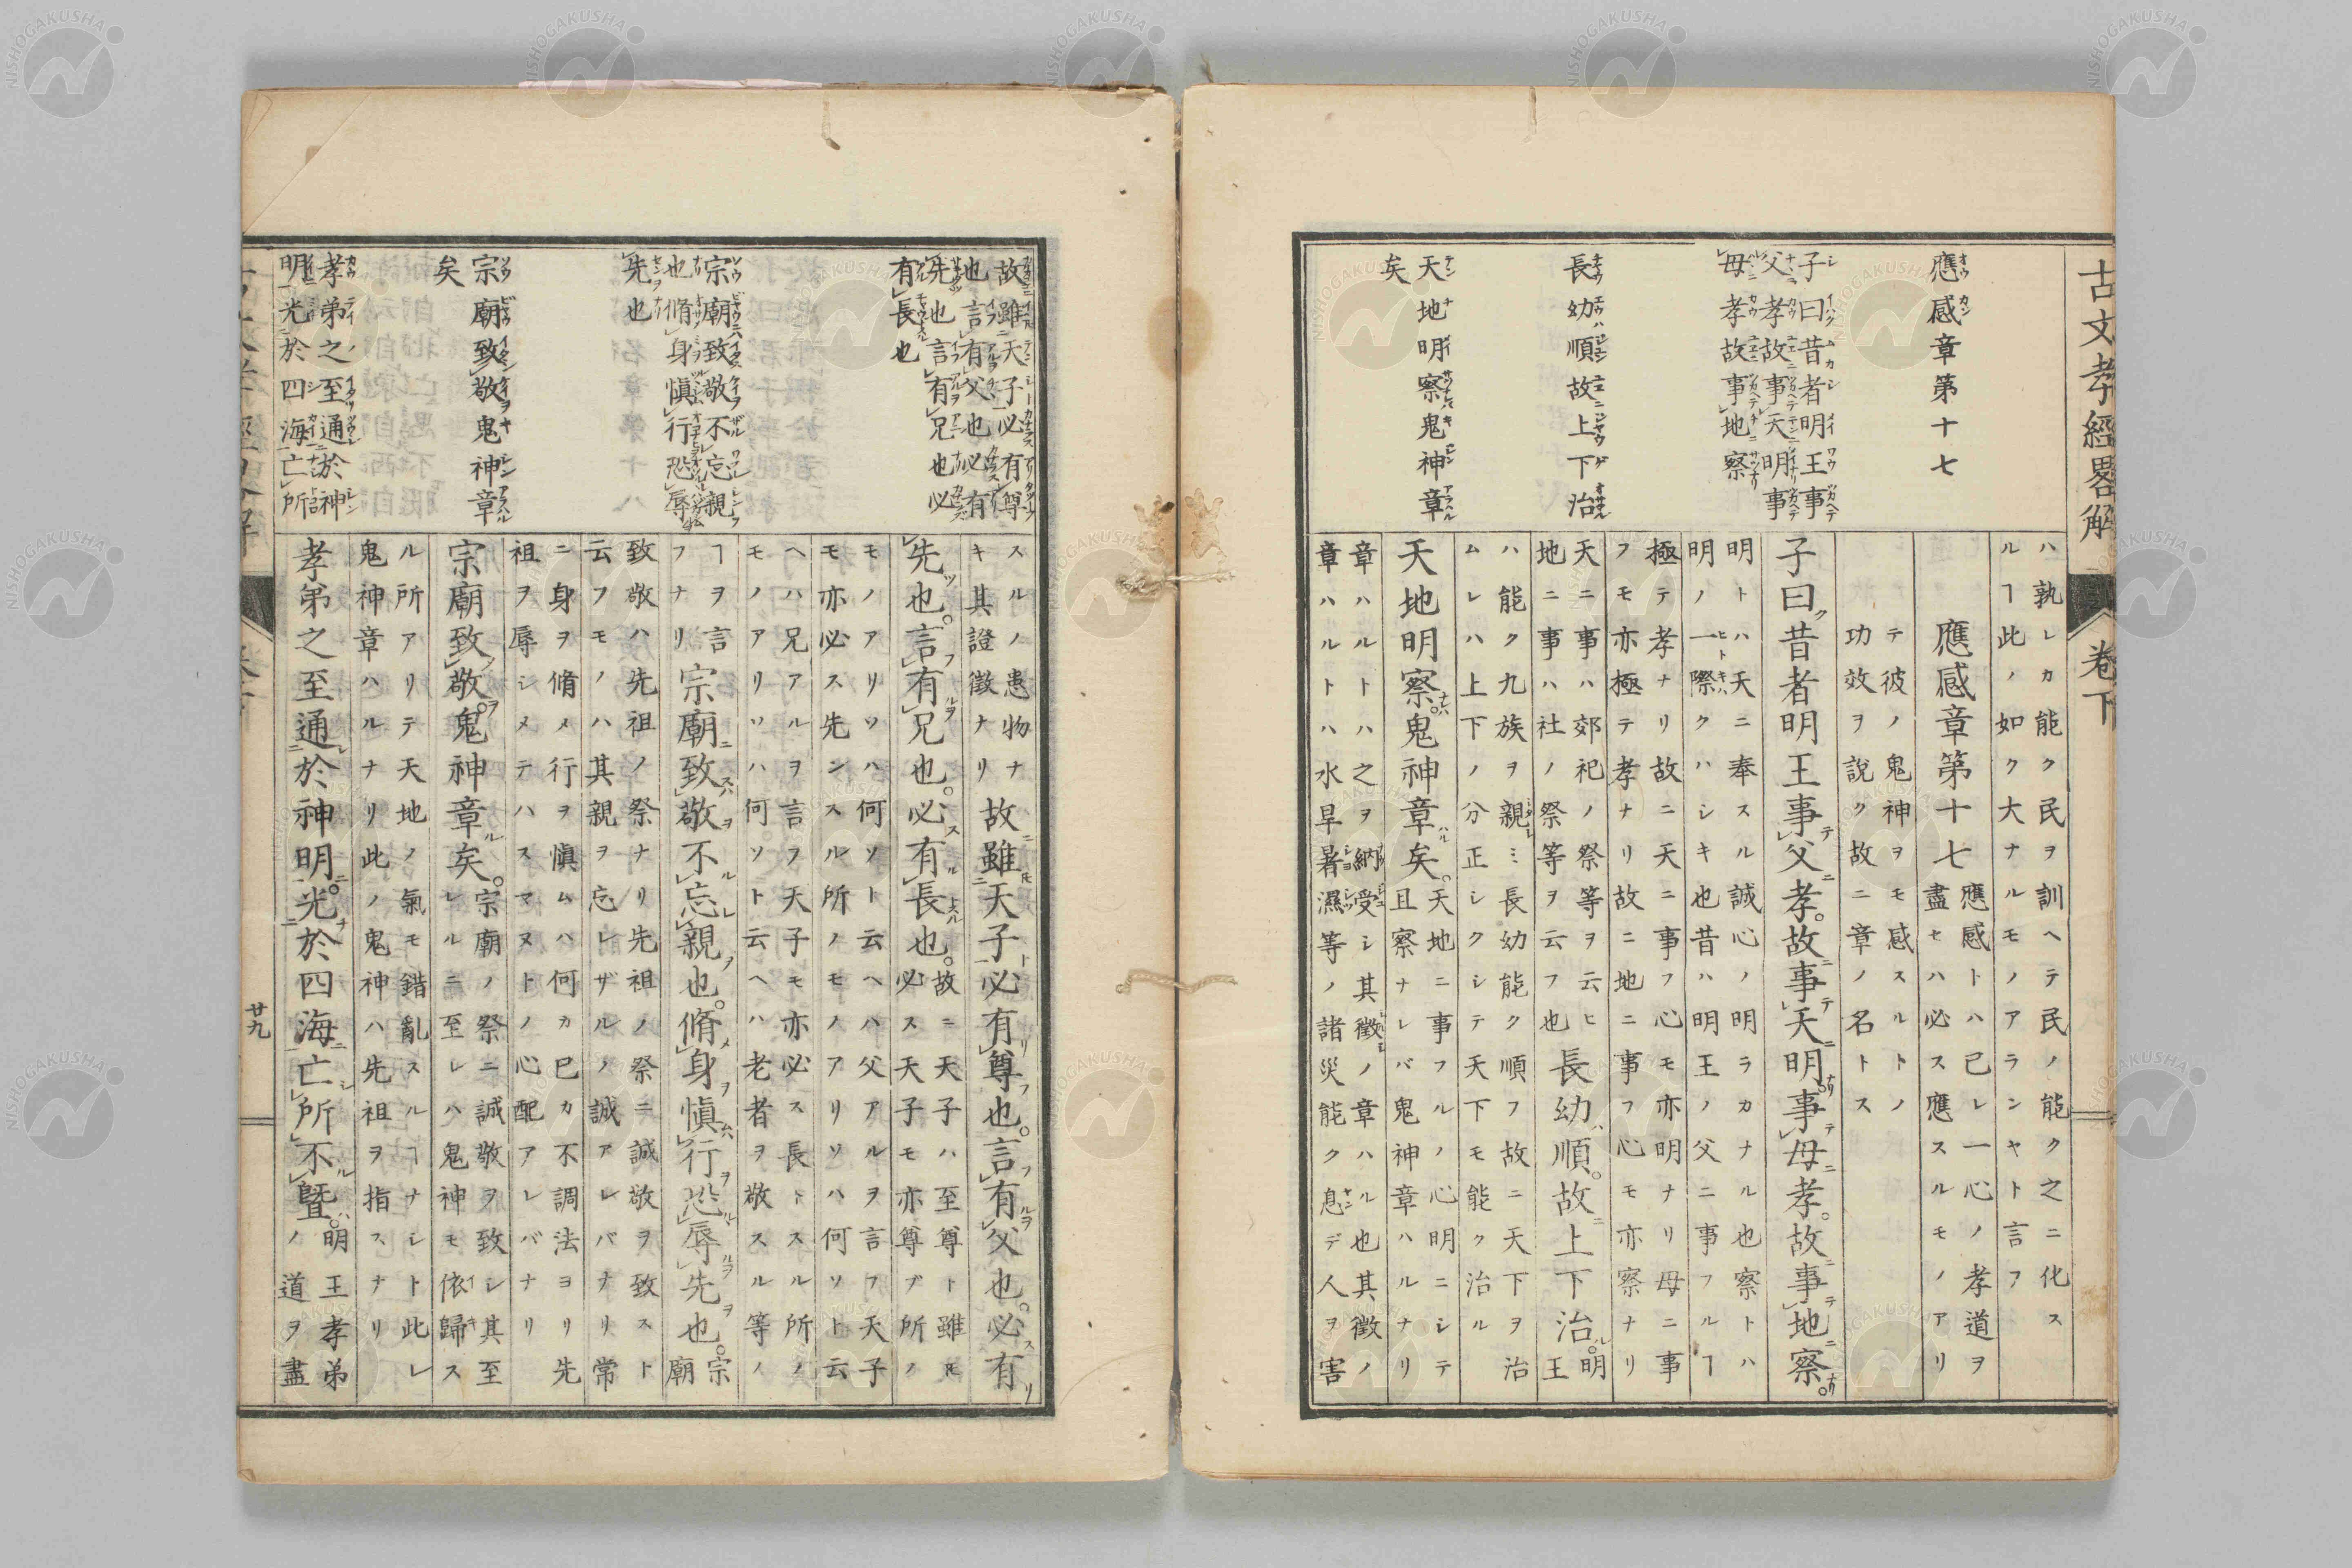 古文孝經畧解
卷下
應感章第十七
子曰昔者明王事
父孝故事天明事
母孝故事地察
長幼順故上下治
天地明察鬼神章
矣
ハ孰レカ能ク民ヲ訓ヘテ民ノ能ク之ニ化ス
ルヿ此ノ如ク大ナルモノアランヤト言フ
應感章第十七
應感トハ己レ一心ノ孝道ヲ
盡セハ必ス應スルモノアリ
テ彼ノ鬼神ヲモ感スルトノ
功效ヲ說ク故ニ章ノ名トス
子曰昔者明王事父孝。故事天明。事母孝。故事地察。
明トハ天ニ奉スル誠心ノ明ラカナル也察トハ
明ノ一際クハシキ也昔ハ明王ノ父ニ事フルヿ
極テ孝ナリ故ニ天ニ事フ心モ亦明ナリ母ニ事
フモ亦極テ孝ナリ故ニ地ニ事フ心モ亦察ナリ
天ニ事ハ郊祀ノ祭等ヲ云ヒ
地ニ事ハ社ノ祭等ヲ云フ也
長幼順。故上下治。
明
王
ハ能ク九族ヲ親ミ長幼能ク順フ故ニ天下ヲ治
ムレハ上下ノ分正シクシテ天下モ能ク治ル
天地明察。鬼神章矣。
天地ニ事フルノ心明ニシテ
且察ナレバ鬼神章ハルナリ
章ハルトハ之ヲ納受シ其徵ノ章ハル也其徵ノ
章ハルトハ水旱暑濕等ノ諸災能ク息デ人ヲ害
故雖天子必有尊
也言有父也必有
先也言有兄也必
有長也
宗廟致敬不忘親
也脩身愼行恐辱
先也
宗廟致敬鬼神章
矣
孝弟之至通於神
明光於四海亡所
スルノ患物ナ
キ其證徵ナリ
故雖天子必有尊也。言有父也。必有
先也。言有兄也。必有長也。
故ニ天子ハ至尊ト雖モ
必ス天子モ亦尊ブ所ノ
モノアリソハ何ソト云ヘハ父アルヲ言フ天子
モ亦必ス先ンスル所ノモノアリソハ何ソト云
ヘハ兄アルヲ言フ天子モ亦必ス長トスル所ノ
モノアリソハ何ソト云ヘハ老者ヲ敬スル等ノ
ヿヲ言
フナリ
宗廟致敬不忘親也。脩身愼行恐辱先也。
宗
廟
致敬ハ先祖ノ祭ナリ先祖ノ祭ニ誠敬ヲ致スト
云フモノハ其親ヲ忘レザルノ誠アレバナリ常
ニ身ヲ脩メ行ヲ愼ムハ何カ己カ不調法ヨリ先
祖ヲ辱シメテハスマヌトノ心配アレバナリ
宗廟致敬。鬼神章矣。
宗廟ノ祭ニ誠敬ヲ致シ其至
レルニ至レハ鬼神モ依歸ス
ル所アリテ天地ノ氣モ錯亂スルヿナシト此レ
鬼神章ハルナリ此ノ鬼神ハ先祖ヲ指スナリ
孝弟之至通於神明。光於四海亡所不曁。
明王孝弟
ノ道ヲ盡
廿九